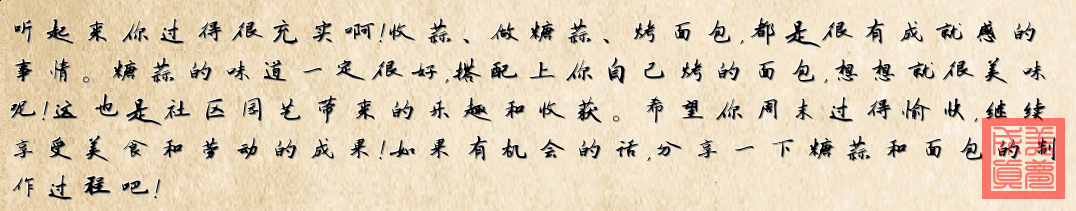 听起来你过得很充实啊!收蒜、做糖蒜、烤面包,都是很有成就感的
事情。糖蒜的味道一定很好,搭配上你自己烤的面包,想想就很美味
呢!这也是社区园艺带来的乐趣和收获。希望你周末过得愉快,继续
享受美食和劳动的成果!如果有机会的话,分享一下糖蒜和面包的制
作过程吧!
美梦成真